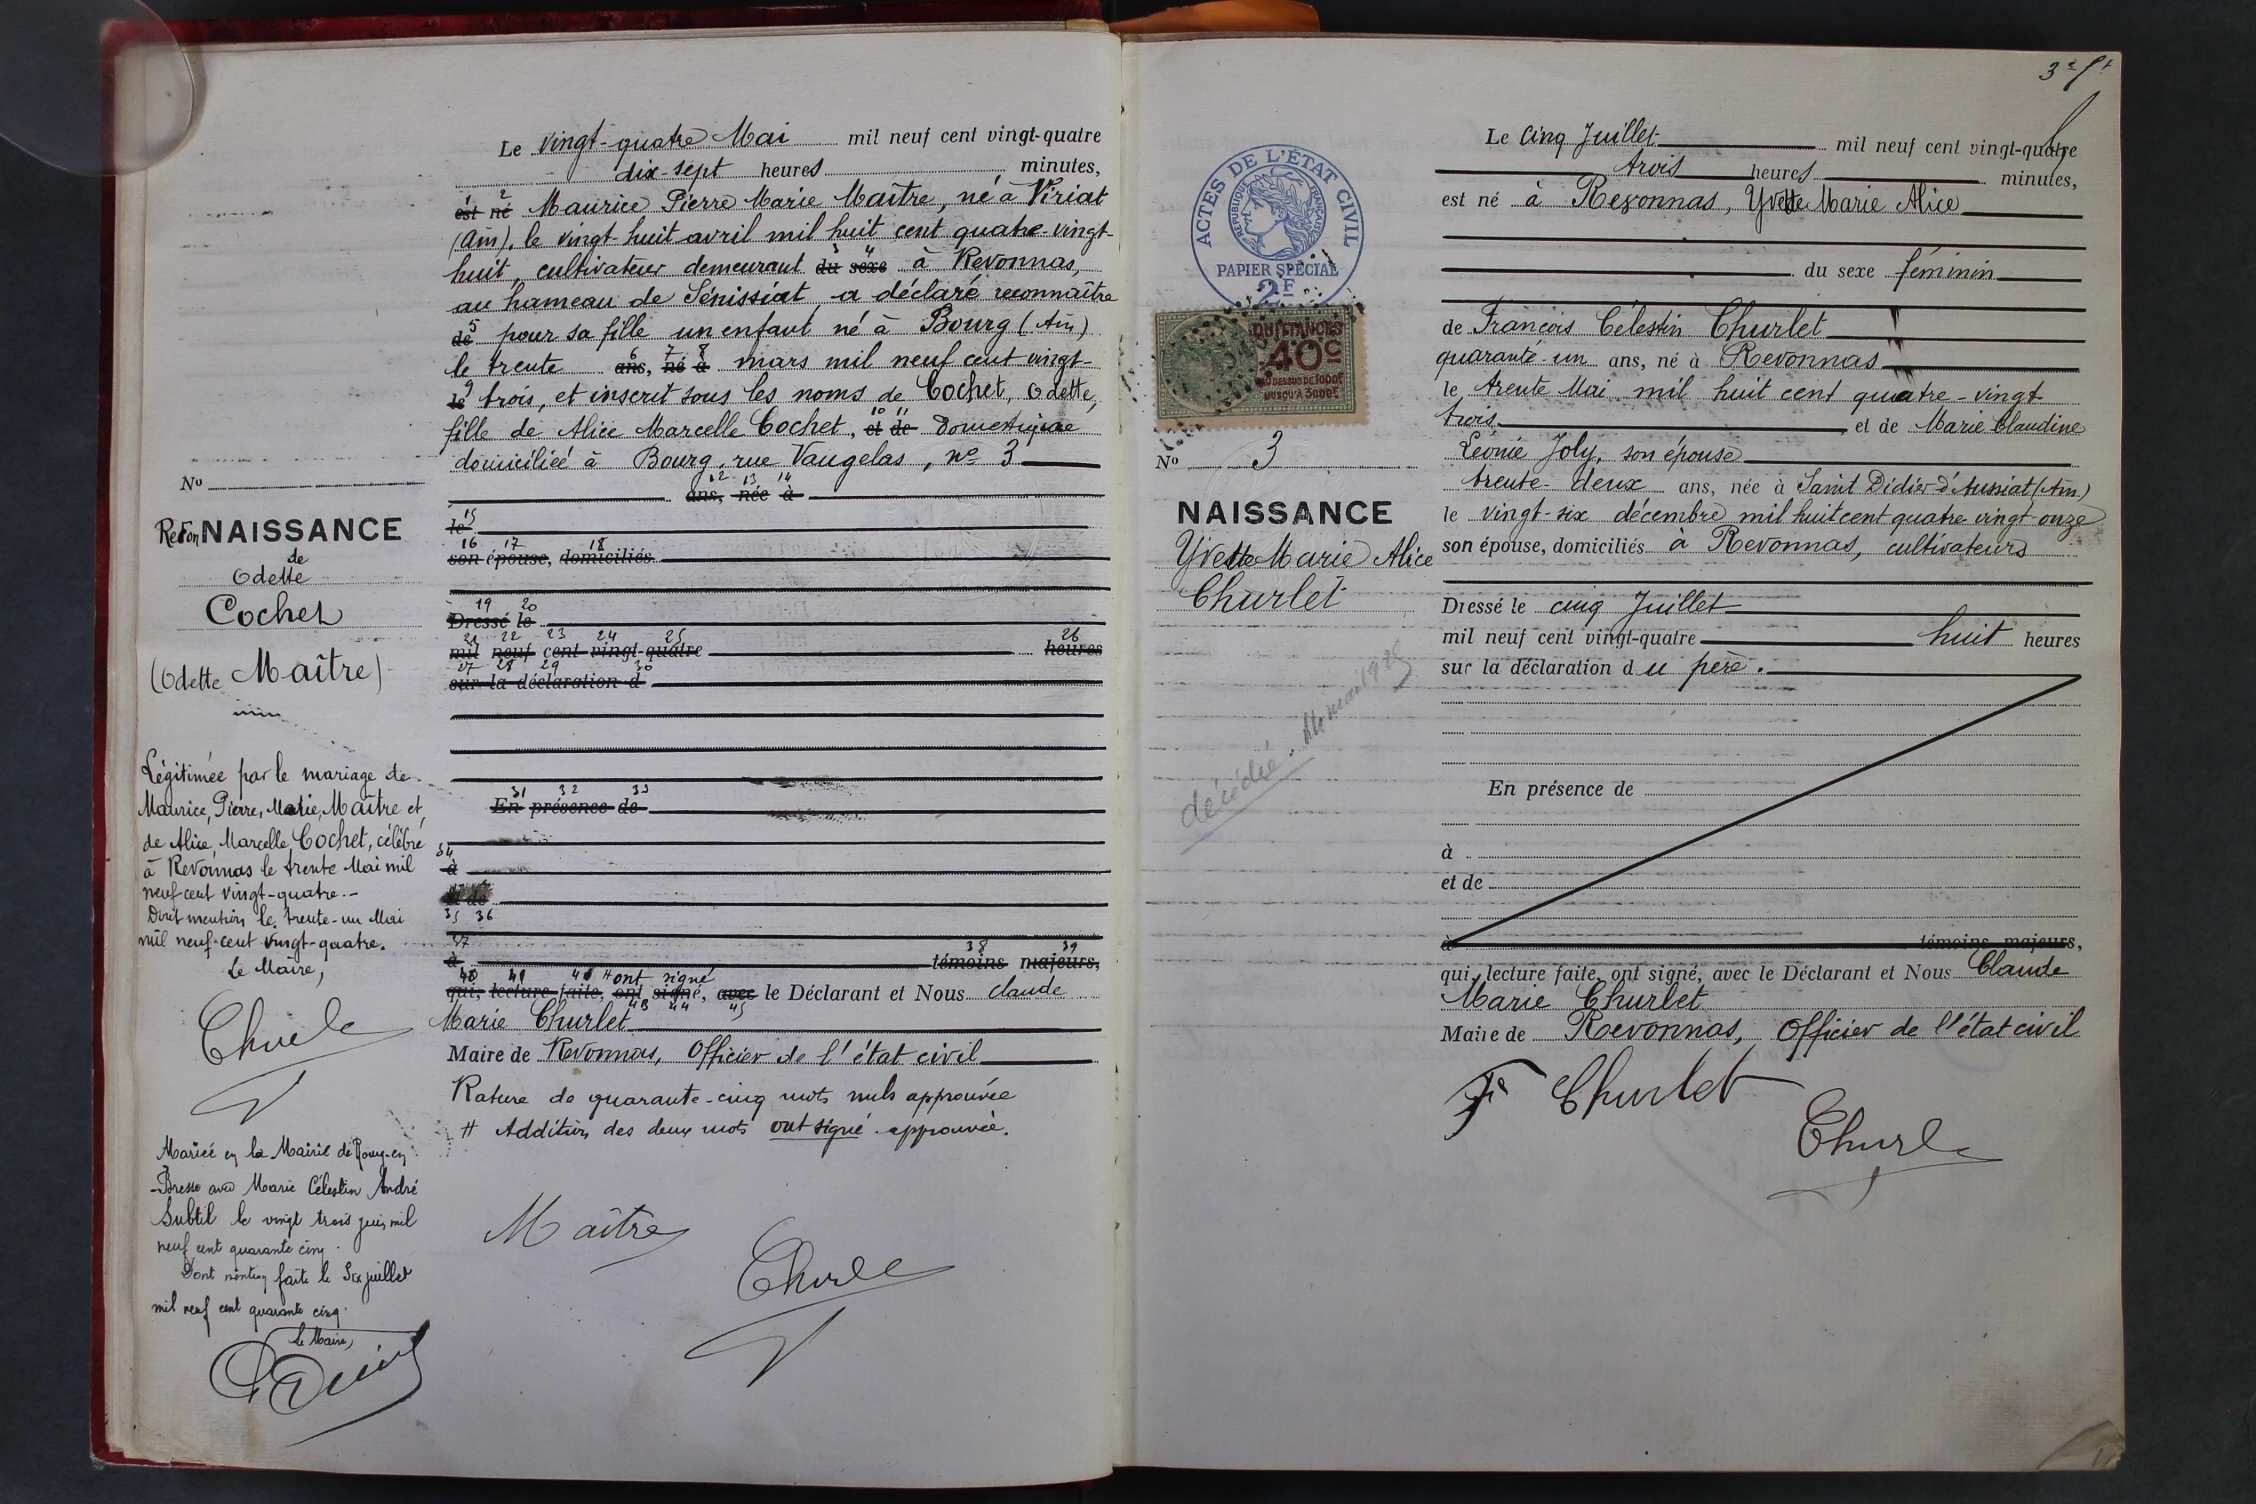 Le vingt-quatre Mai mil neuf cent vingt-quatre
dix-sept heures minutes,
1 2
est né Maurice Pierre Marie Maître, né à Viriat
(Ain), le vingt huit avril mil huit cent quatre-vingt-
huit, cultivateur demeurant du sexe à Revonnas,
au hameau de Sénissiat, a déclaré reconnaître
5
de pour sa fille un enfant né à Bourg (Ain)
6 7 8
le trente ans, né à mars mil neuf cent vingt-
9
le trois, et inscrit sous les noms de Cochet, Odette,
10 11
fille de Alice Marcelle Cochet, et de domestique
domiciliée à Bourg, rue Vaugelas, no 3
12 13 14
ans, née à
15
le
16 17 18
son épouse, domiciliés
19 20
Dressé le
21 22 23 24 25 26
mil neuf cent vingt-quatre heures
27 28 29 30
sur la déclaration d
31 32 33
En présence de
34
à
et de
35 36
37 38 39
à témoins majeurs,
40 41 42 # ont signé
qui, lecture faite, ont signé, avec le Déclarant et Nous Claude
43 44 45
Marie Churlet
Maire de Revonnas, Officier de l'état civil
Rature de quarante-cinq mots nuls approuvée
# Addition des deux mots ont signé approuvée.
Maître
No
Recon NAISSANCE
de
Odette
Cochet
(Odette Maître)
Légitimée par le mariage de
Maurice, Pierre, Marie, Maître et
de Alice, Marcelle, Cochet, célébré
à Revonnas le trente Mai mil
neuf cent vingt-quatre.-
Dont mention le trente-un Mai
mil neuf-cent vingt-quatre.
Le Maire,
Mariée en la Mairie de Bourg-en
-Bresse avec Marie Célestin André
Subtil le vingt trois juin mil
neuf cent quarante cinq.
Dont mention faite le Six juillet
mil neuf cent quarante cinq.
Le Maire,
ACTES DE L'ÉTAT CIVIL
RÉPUBLIQUE FRANÇAISE
PAPIER SPÉCIAL
2F
QUITTANCES
40c
AU DESSUS DE 1000F
JUSQU'A 3000F
No 3
NAISSANCE
Yvette Marie Alice
Churlet
décédée
Le cinq Juillet mil neuf cent vingt-quatre
trois heures minutes,
est né à Revonnas, Yvette Marie Alice
du sexe féminin
de François Célestin Churlet
quarante-un ans, né à Revonnas
le trente Mai mil huit cent quatre-vingt
trois, et de Marie Claudine
Léonie Joly, son épouse
trente-deux ans, née à Saint Didier-d'Aussiat (Ain)
le vingt-six décembre mil huit cent quatre vingt onze
son épouse, domiciliés à Revonnas, cultivateurs
Dressé le cinq Juillet
mil neuf cent vingt-quatre huit heures
sur la déclaration du père.
En présence de
à
et de
à témoins majeurs,
qui, lecture faite, ont signé, avec le Déclarant et Nous Claude
Marie Churlet
Maire de Revonnas, Officier de l'état civil
Churlet